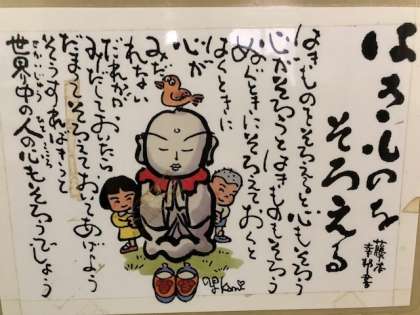 はきものを
そろえる
藤本
幸邦書
はきものをそろえると心もそろう
心がそろうとはきものもそろう
ぬぐときにそろえておくと
はくときに
心が
みだ
れない
だれかが
みだしておいたら
だまってそろえておいてあげよう
そうすればきっと
世界中の人の心もそろうでしょう